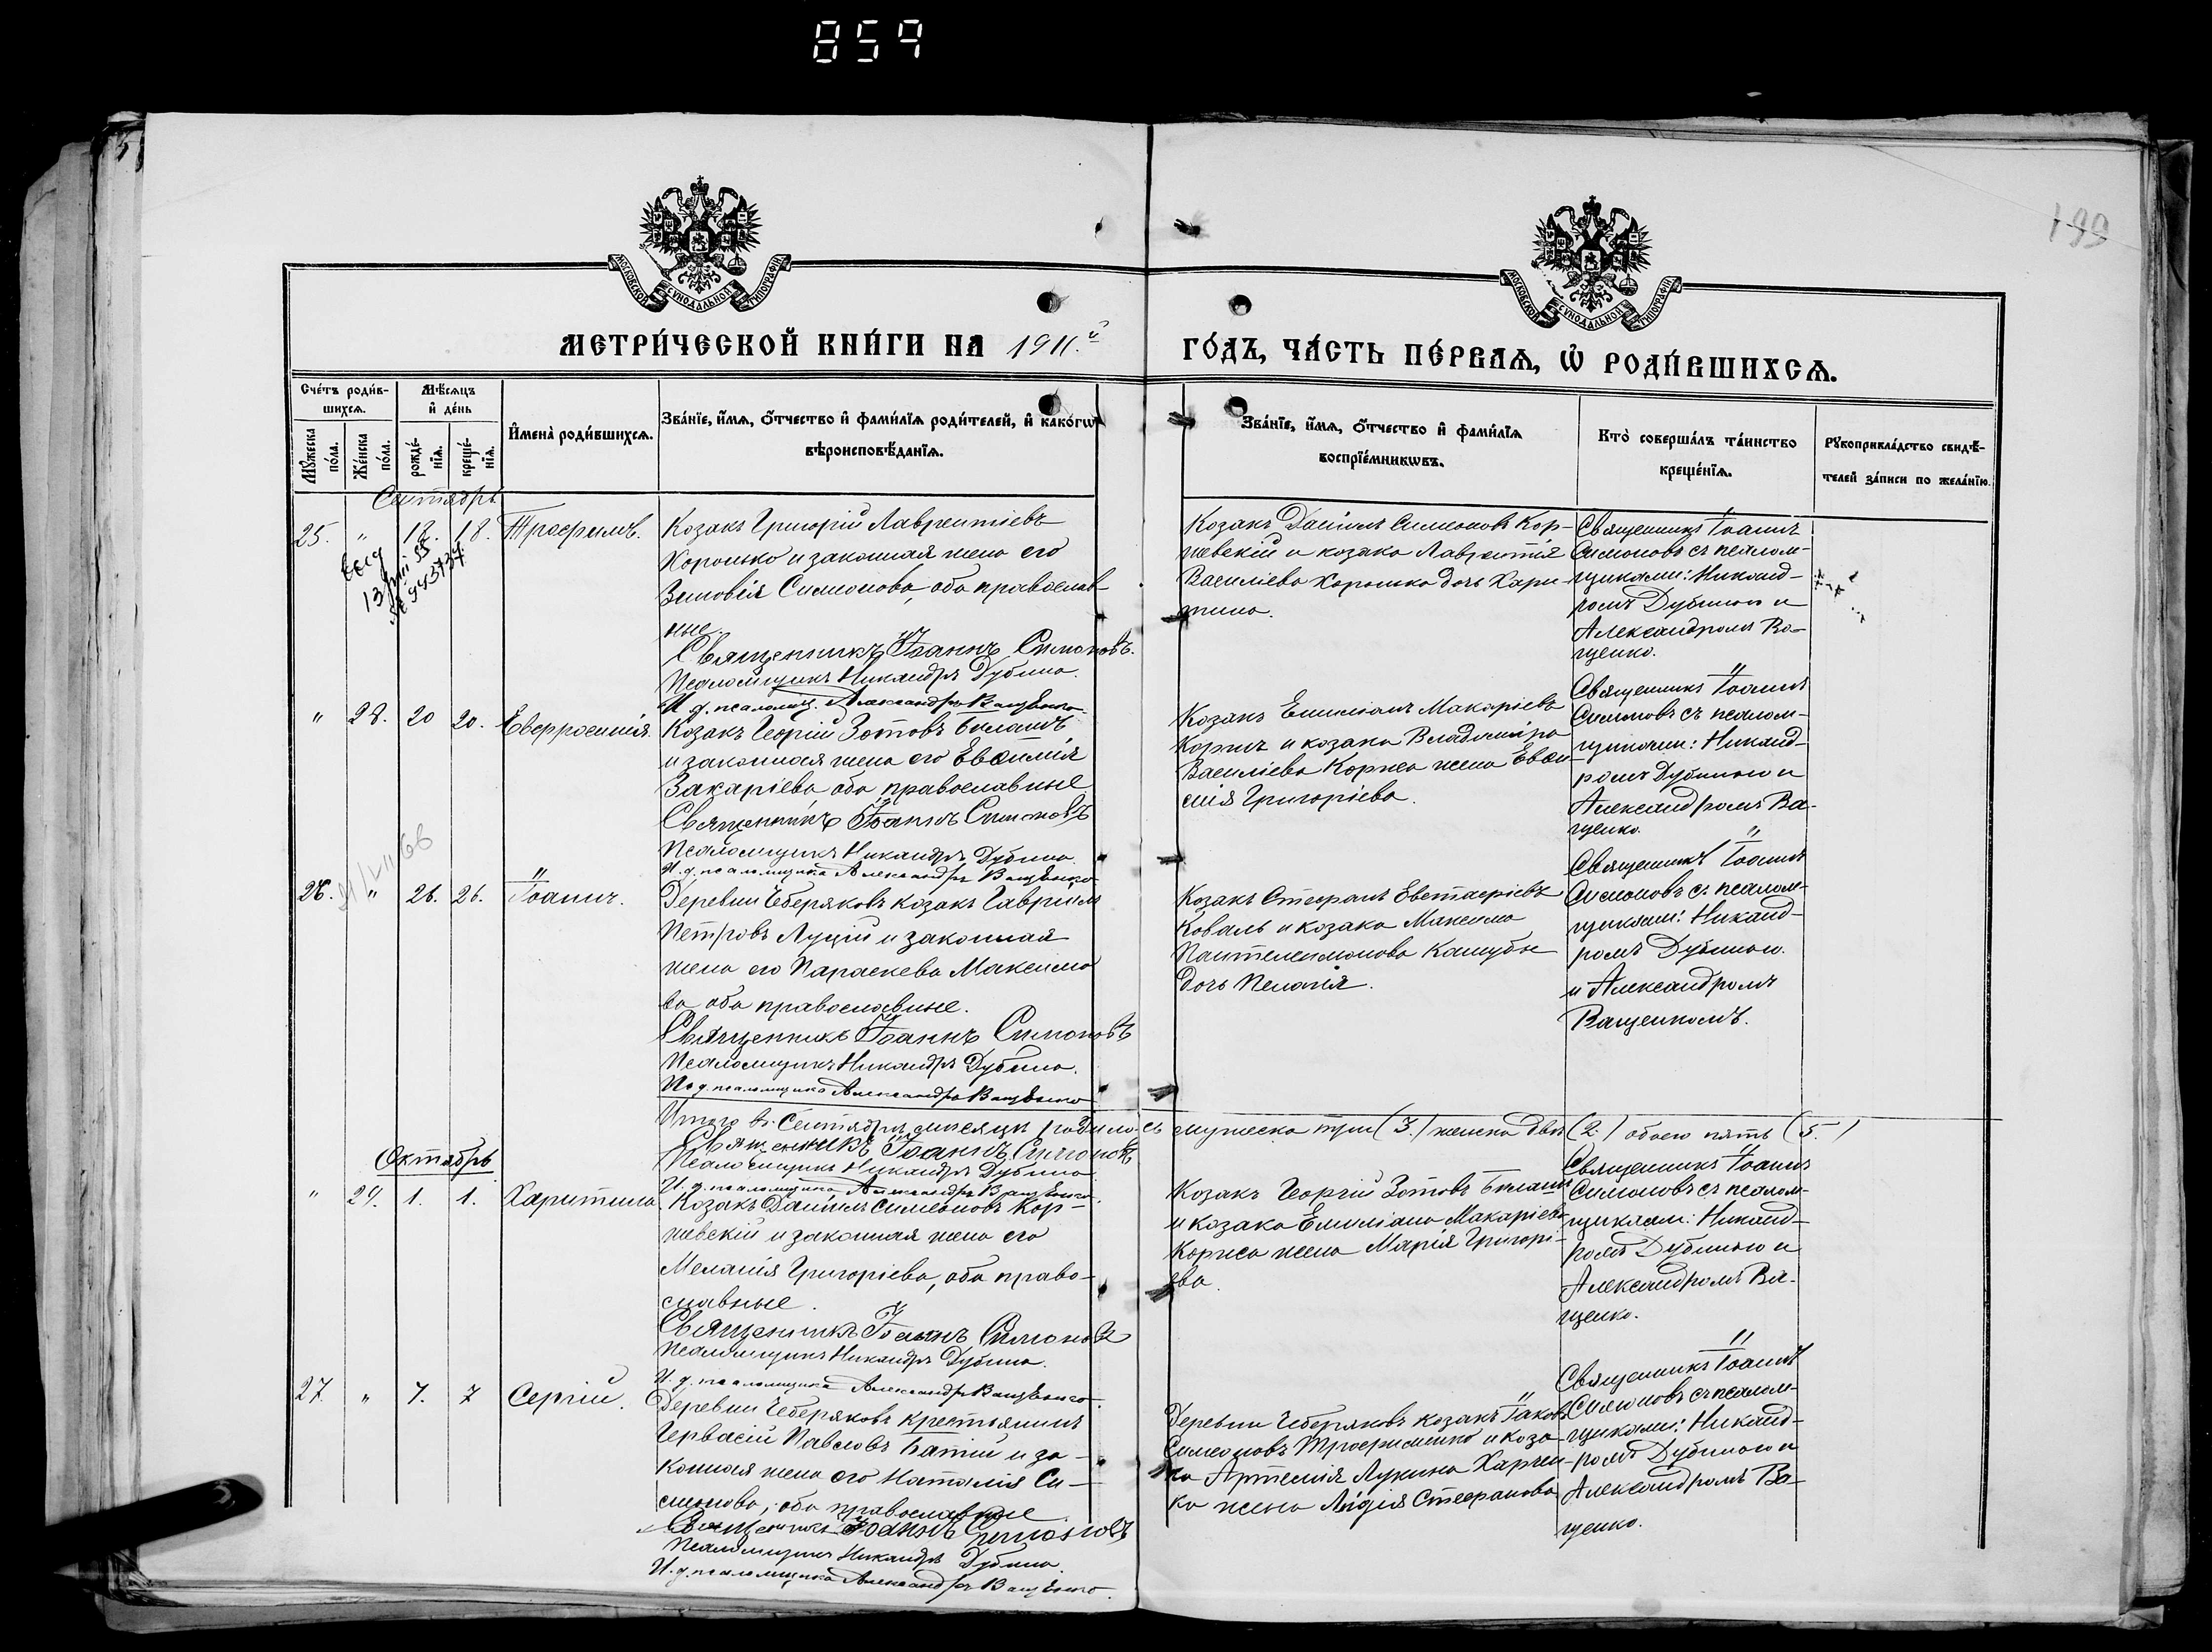 859
199
МОСКОВСКОЙ СѴНОДАЛЬНОЙ ТИПОГРАФІИ
МОСКОВСКОЙ СѴНОДАЛЬНОЙ ТИПОГРАФІИ
МЕТРИ́ЧЕСКОЙ КНИ́ГИ НА 1911.й
ГО́ДЪ, ЧА́СТЬ ПЕ́РВАѦ, Ѡ҆ РОДИ́ВШИХСѦ.
Сче́тъ роди́в-
шихсѧ.
Мꙋ́жеска по́ла.
Же́нска по́ла.
Мѣ́сѧцъ
и҆ де́нь
рожде́-
нїѧ.
креще́-
нїѧ.
И҆мена̀ роди́вшихсѧ.
Зва́нїе, и҆́мѧ, ѻ҆́тчество и҆ фами́лїѧ роди́телей, и҆ како́гѡ
вѣроисповѣ́данїѧ.
Зва́нїе, и҆́мѧ, ѻ҆́тчество и҆ фами́лїѧ
воспрїе́мникѡвъ.
Кто̀ соверша́лъ та́инство
креще́нїѧ.
Рꙋкоприкла́дство свидѣ́-
телей за́писи по жела́нїю.
Сентябрь
25. " 12. 18. Трофимъ.
13 55
Козакъ Григорій Лаврентіевъ
Хорошко и законная жена его
Зиновія Симеонова, оба православ-
ные.
Священникъ Іоаннъ Симоновъ.
Псаломщикъ Никандръ Дубина.
И. д. псаломщ. Александръ Ващенко
Козакъ Даніилъ Симеоновъ Кор-
невскій и козака Лаврентія
Василіева Хорошка дочь Хари-
тина.
Священникъ Іоаннъ
Симоновъ съ псалом-
щиками: Никанд-
ромъ Дубиною и
Александромъ Ва-
щенко.
" 28. 20 20. Евфросинія.
Козакъ Георгій Зотовъ Билашъ
и законная жена его Евѳимія
Захаріева, оба православные
Священникъ Іоаннъ Симоновъ
Псаломщикъ Никандръ Дубина.
И. д. псаломщика Александръ Ващенко
Козакъ Емиліанъ Макаріевъ
Коржъ и козака Владиміра
Василіева Коржа жена Евѳи-
мія Григоріева.
Священникъ Іоаннъ
Симоновъ съ псалом-
щиками: Никанд-
ромъ Дубиною и
Александромъ Ва-
щенко.
26. " 26. 26. Іоаннъ.
Деревни Чеберяковъ козакъ Гавріилъ
Петровъ Луцій и законная
жена его Параскева Максимо
ва оба православные.
Священникъ Іоаннъ Симоновъ
Псаломщикъ Никандръ Дубина.
И. д. псаломщика Александръ Ващенко
Козакъ Стефанъ Евстафіевъ
Коваль и козака Максима
Пантелеимонова Кашубы
дочь Пелагія.
Священникъ Іоаннъ
Симоновъ съ псалом-
щиками: Никанд-
ромъ Дубиною.
и Александромъ
Ващенкомъ.
Итого въ Сентябрѣ мѣсяцѣ родилось мужеска три (3.) женска двѣ (2.) обоего пять (5.)
Священникъ Іоаннъ Симоновъ
Псаломщикъ Никандръ Дубина
И. д. псаломщика Александръ Ващенко.
Октябрь
" 29. 1. 1. Харитина.
Козакъ Даніилъ Симеоновъ Кор-
невскій и законная жена его
Меланія Григоріева, оба право-
славные.
Священникъ Іоаннъ Симоновъ
Псаломщикъ Никандръ Дубина.
И. д. псаломщика Александръ Ващенко.
Козакъ Георгій Зотовъ Билашъ
и козака Емиліана Макаріева
Коржа жена Марія Григорі-
ева.
Священникъ Іоаннъ
Симоновъ съ псалом-
щиками: Никанд-
ромъ Дубиною и
Александромъ Ва-
щенко.
27. " 7. 7 Сергій.
Деревни Чеберяковъ крестьянинъ
Гервасій Павловъ Батій и за-
конная жена его Наталія Си-
меонова, оба православные.
Священникъ Іоаннъ Симоновъ
Псаломщикъ Никандръ Дубина.
И. д. псаломщика Александръ Ващенко.
Деревни Чеберяковъ козакъ Іаковъ
Симеоновъ Трофименко и коза-
ка Артемія Лукина Харчен-
ка жена Лидія Стефанова
Священникъ Іоаннъ
Симоновъ съ псалом-
щиками: Никанд-
ромъ Дубиною и
Александромъ Ва-
щенко.